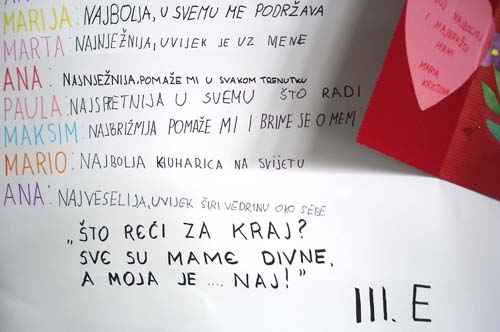 MARIJA: NAJBOLJA, U SVEMU ME PODRŽAVA
MARTA: NAJNJEŽNIJA, UVIJEK JE UZ MENE
ANA: NAJNJEŽNIJA, POMAŽE MI U SVAKOM TRENUTKU
PAULA: NAJSRETNIJA U SVEMU ŠTO RADI
MAKSIM: NAJBRIŽNIJA POMAŽE MI I BRINE SE O MEM
MARIO: NAJBOLJA KUHARICA NA SVIJETU
ANA: NAJVESELIJA, UVIJEK ŠIRI VEDRINU OKO SEBE
„ŠTO REĆI ZA KRAJ?
SVE SU MAME DIVNE,
A MOJA JE .... NAJ!"
III. E
NAJBOLJOJ
I NAJDRAŽOJ
MAMI
MARIA
KRISTINA